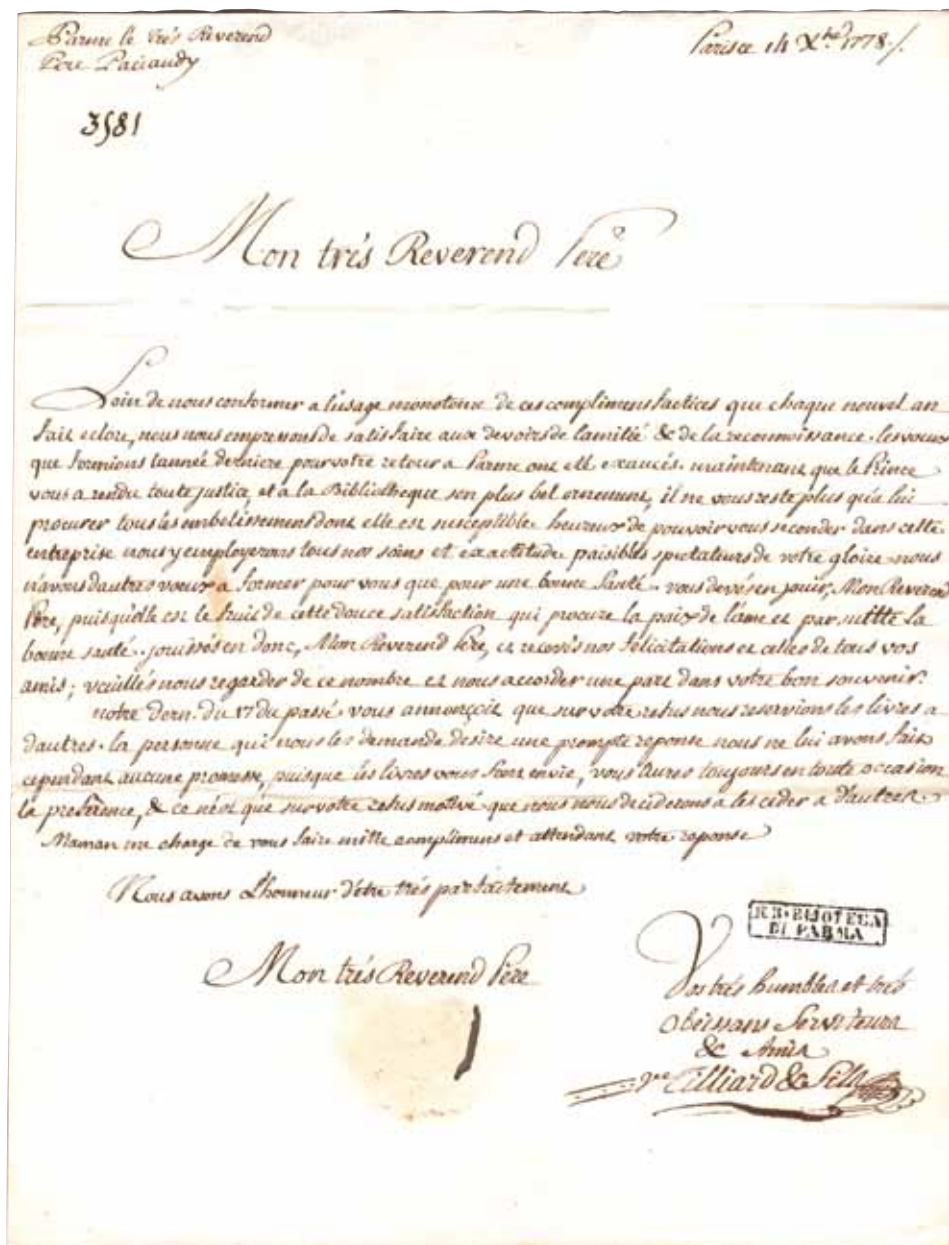 Parme le trés Reverend
Pere Paciaudy
Paris ce 14 Xbre 1778 ./.
3581
Mon trés Reverend Pere
Loin de nous conformer a l'usage monotone de ces complimens factices que chaque nouvel an
fait eclore, nous nous empressons de satisfaire aux devoirs de l'amitié & de la reconnoissance. les voeux
que formions l'année derniere pour votre retour a Parme ont eté exaucés. maintenant que le Prince
vous a rendu toute justice, et a la Bibliotheque son plus bel ornement, il ne vous reste plus qu'a lui
procurer tous les embelissemens dont elle est susceptible. heureux de pouvoir vous seconder dans cette
entreprise nous y employerons tous nos soins et exactitude. paisibles spectateurs de votre gloire nous
n'avons d'autres voeux a former pour vous que pour une bonne santé. vous devés en jouir, Mon Reverend
Pere, puisqu'elle est le fruit de cette douce satisfaction qui procure la paix de l'ame et par suitte la
bonne santé. jouissés en donc, Mon Reverend Pere, et recevés nos félicitations et celles de tous vos
amis; veuillés nous regarder de ce nombre et nous accorder une part dans votre bon souvenir.
notre dern. du 17 du passé vous annonçoit que sur votre refus nous reservions les livres a
d'autres. la personne qui nous les demande desire une prompte reponse nous ne lui avons fait
cependant aucune promesse, puisque les livres vous font envie, vous aures toujours en toute occasion
la preference, & ce n'est que sur votre refus motivé que nous nous deciderons a les ceder a d'autres.
Maman me charge de vous faire mille complimens et attendant votre reponse
Nous avons L'honneur d'être trés parfaitement
Mon trés Reverend Pere
R. BIBLIOTECA
DI PARMA
Vos trés humbles et trés
Obeissans Serviteurs
& Amis
Ve Tilliard & Fils